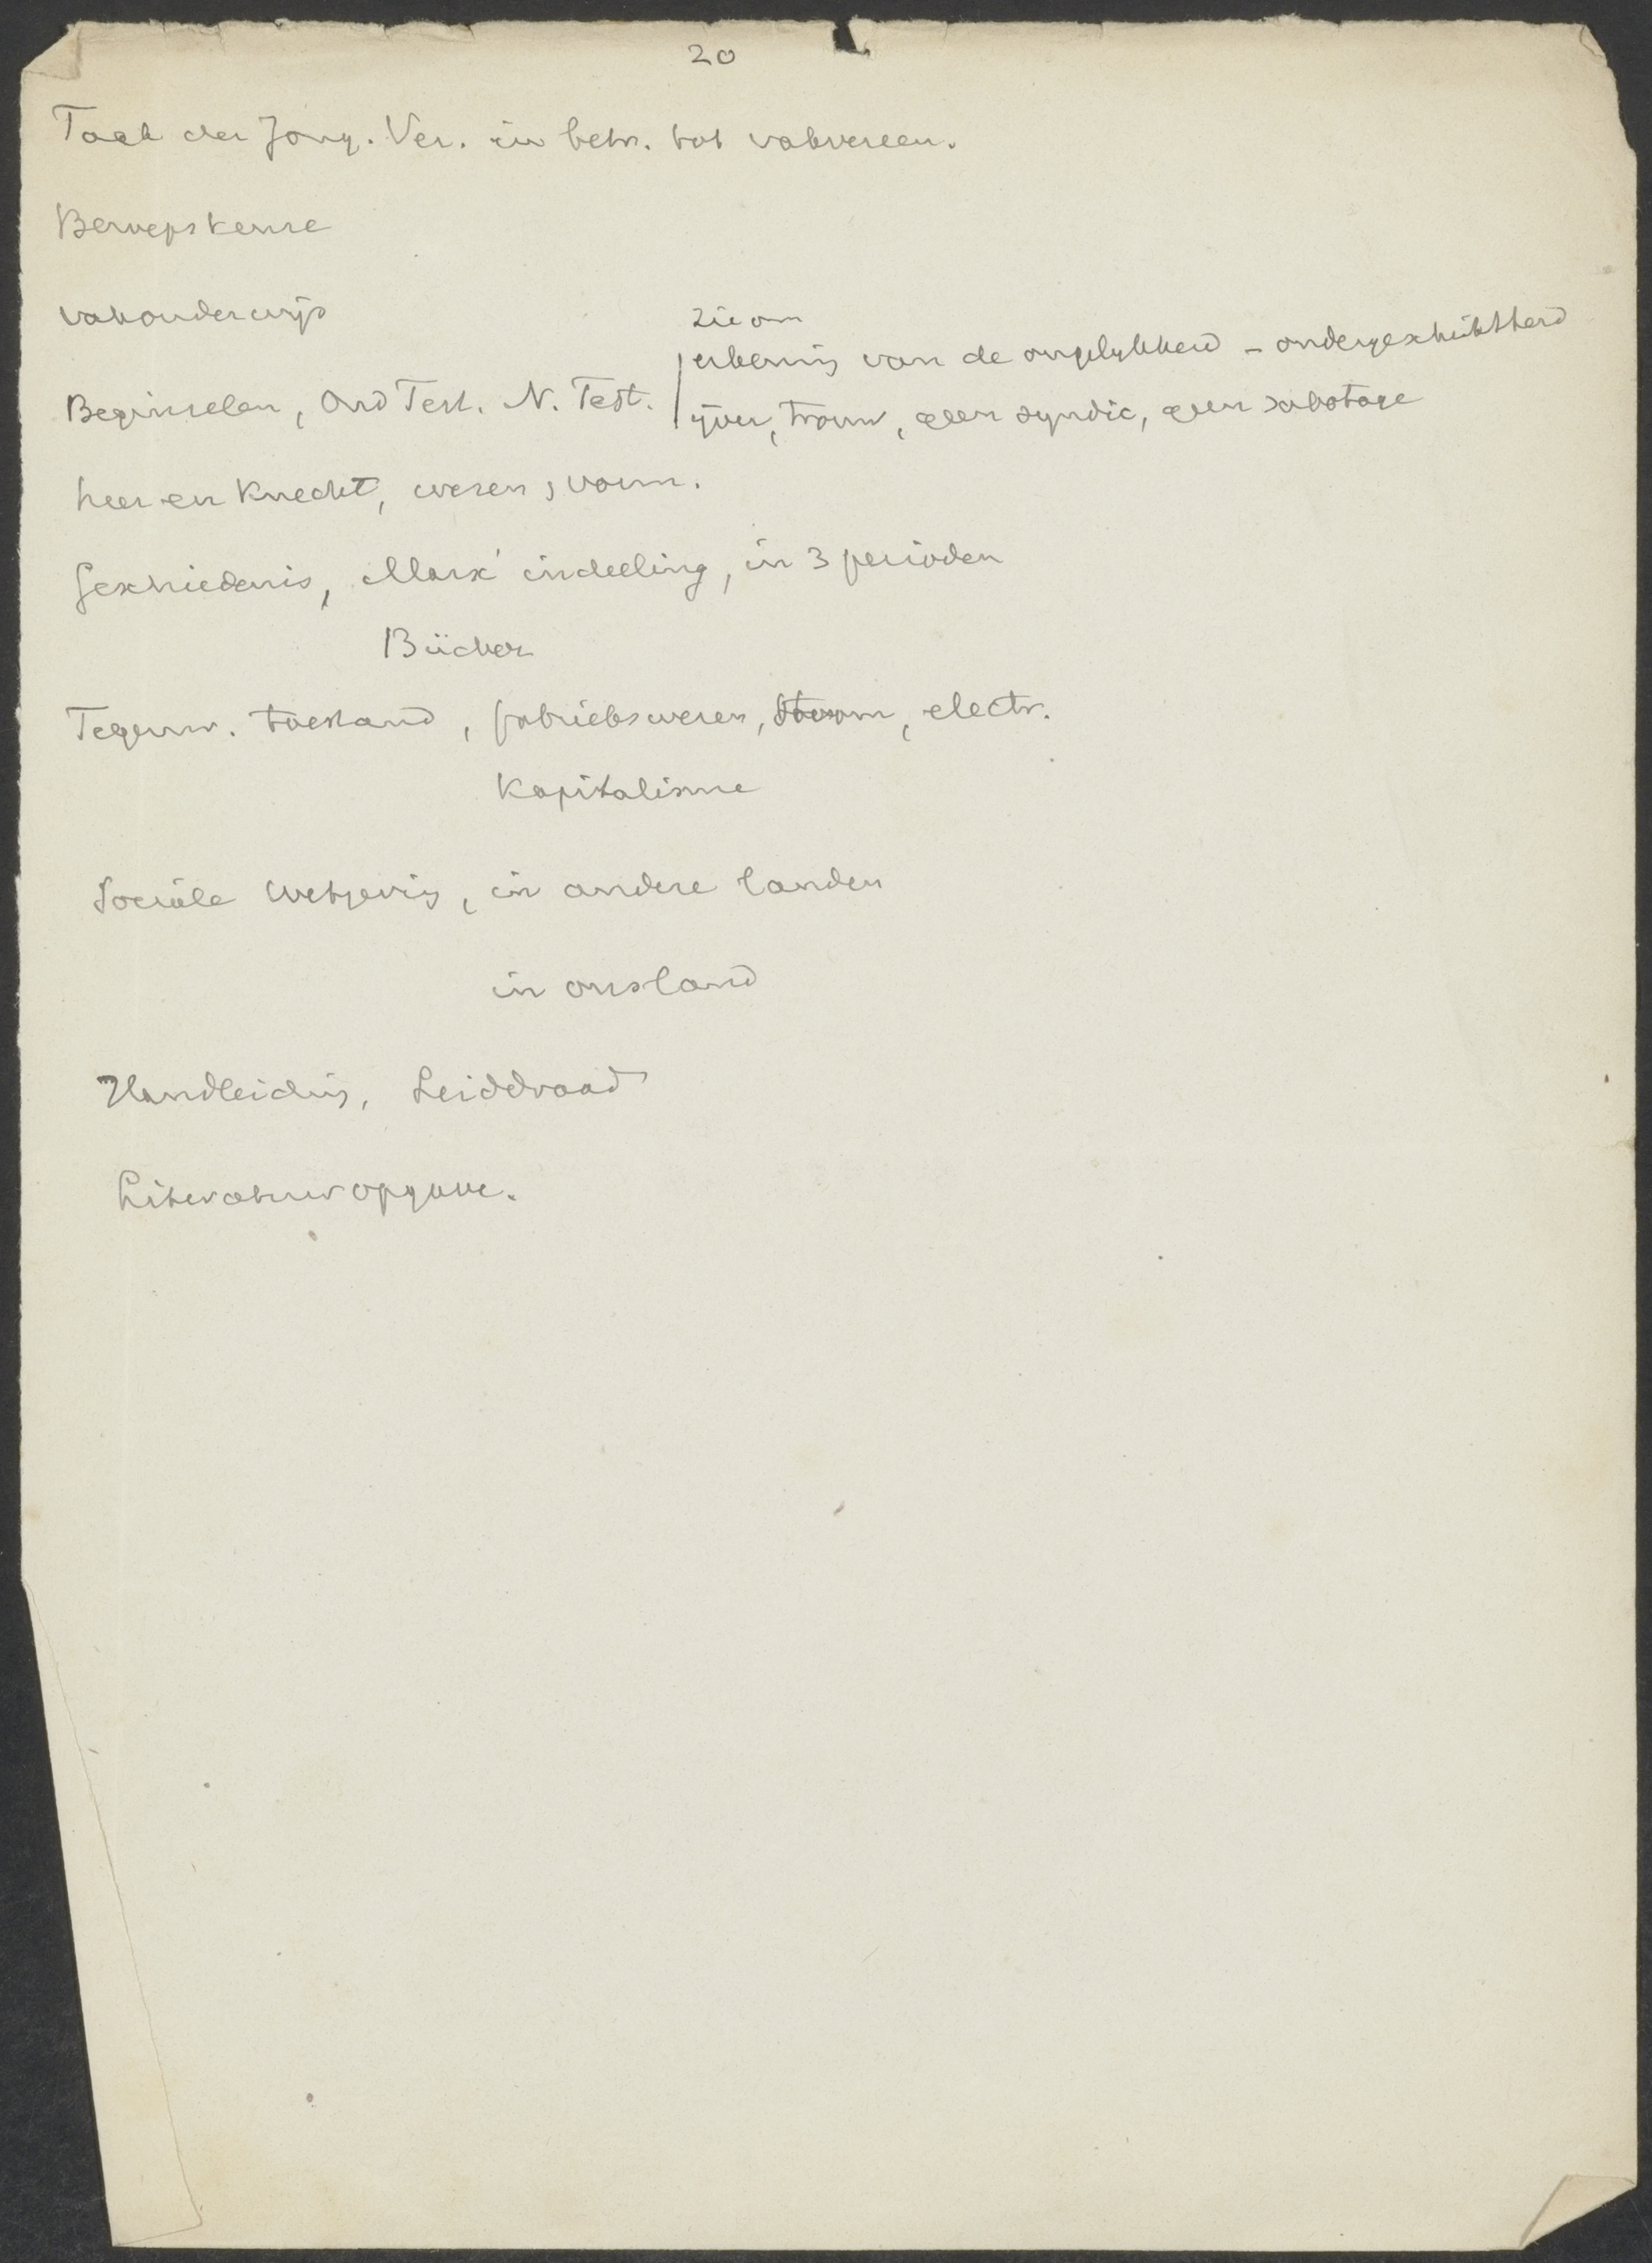 20
Taak der Jong. Ver. in betr. tot vakvereen.
Beroepskeuze
vakonderwijs
zie om
erkening van de ongelijkheid - ondergeschiktheid
Beginselen, Oud Test. N. Test.
ijver, trouw, geen syndic, geen sabotage
heer en knecht, wezen, vorm.
Geschiedenis, Marx' indeeling, in 3 perioden
Bücher
Tegenw. toestand, fabriekswezen, stoom, electr.
Kapitalisme
Sociale wetgeving, in andere landen
in ons land
Handleiding, Leiddraad
Literatuuropgave.